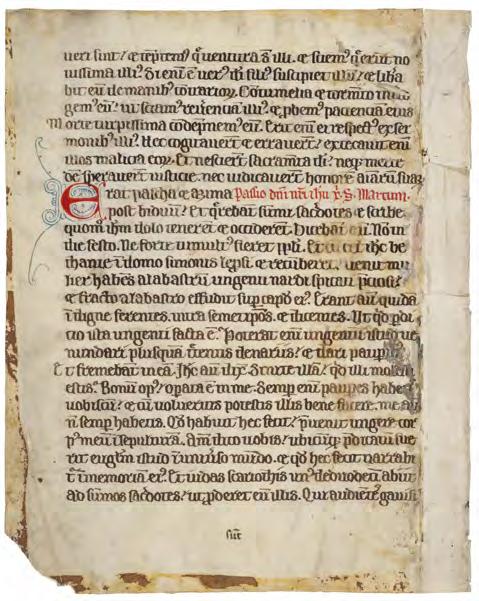 ueri sunt / & tẽptent q̃ uentura s̃ illi. & sciem⁹ q̃ erũt no
uissima illi⁹. Si enĩ ẽ uer⁹ di fili⁹ suscipiet illũ / & libe
bit eũ de manib⁹ cõtrarioꝝ. Cõtumelia & tormẽto
gem⁹ eũ / ut sciam⁹ reuerenciã illi⁹ & ꝓbem⁹ pacienciã ei⁹
Morte turpissima cõdẽpnem⁹ eũ. Erit enĩ ei respect⁹ ex ser
monib⁹ illi⁹. Hec cogitauerũt & errauerũt / excecauit enĩ
illos malicia eoꝝ. Et nescierũt sacramta di / neq; mercẽ
dẽ sperauerũt iusticie. nec iudicauerũt honorẽ aiarũ scaꝝ
Erat pascha & azima Passio dñi nri ihu x. S. Marcum.
post biduũ / Et q̃rebãt sũmi sacdotes & scribe
quom̃ ihm dolo tenerẽt & occiderẽt. Dicebãt eñi. Nõ in
die festo. Ne forte tumult⁹ fieret ppli. Et cũ eẽt ihc be
thanie ĩ domo simonis lepsi & recũberet / uenit mu
lier habẽs alabastrũ ungenti nardi spicati p̃ciosi /
& fracto alabastro effudit sup caput ei⁹. Erant aũt quidã
ĩdigne ferentes. intra semetip̃os. & dicentes. Ut qd pdi
cio ista ungenti facta ẽ. Poterat enĩ ungentũ istud ue
nundari plusquã t̃centis denariis / & dari paupib⁹
Et fremebãt in eã. Ihc aũt dix. Sinite illã / qd illi molesti
estis. Bonũ op⁹ opata ẽ in me. Semp enĩ paupes habet
uobiscũ / & cũ uoluerits potestis illis bene facere. me aũ
ñ semp habetis. Qd habuit hec fecit. p̃uenit ungere cor
p⁹ meũ ĩ sepulturã. Am̃ dico uobis / ubicũq; pdicatũ fue
rit euglm istud ĩ uniuso mũdo. & qd hec fecit narrabi
t̃ ĩ memoriã ei⁹. Et iudas scariothis un⁹ de duodeci abiit
ad sũmos sacdotes / ut pderet eũ illis. Qui audiẽtes gauisi
sũt